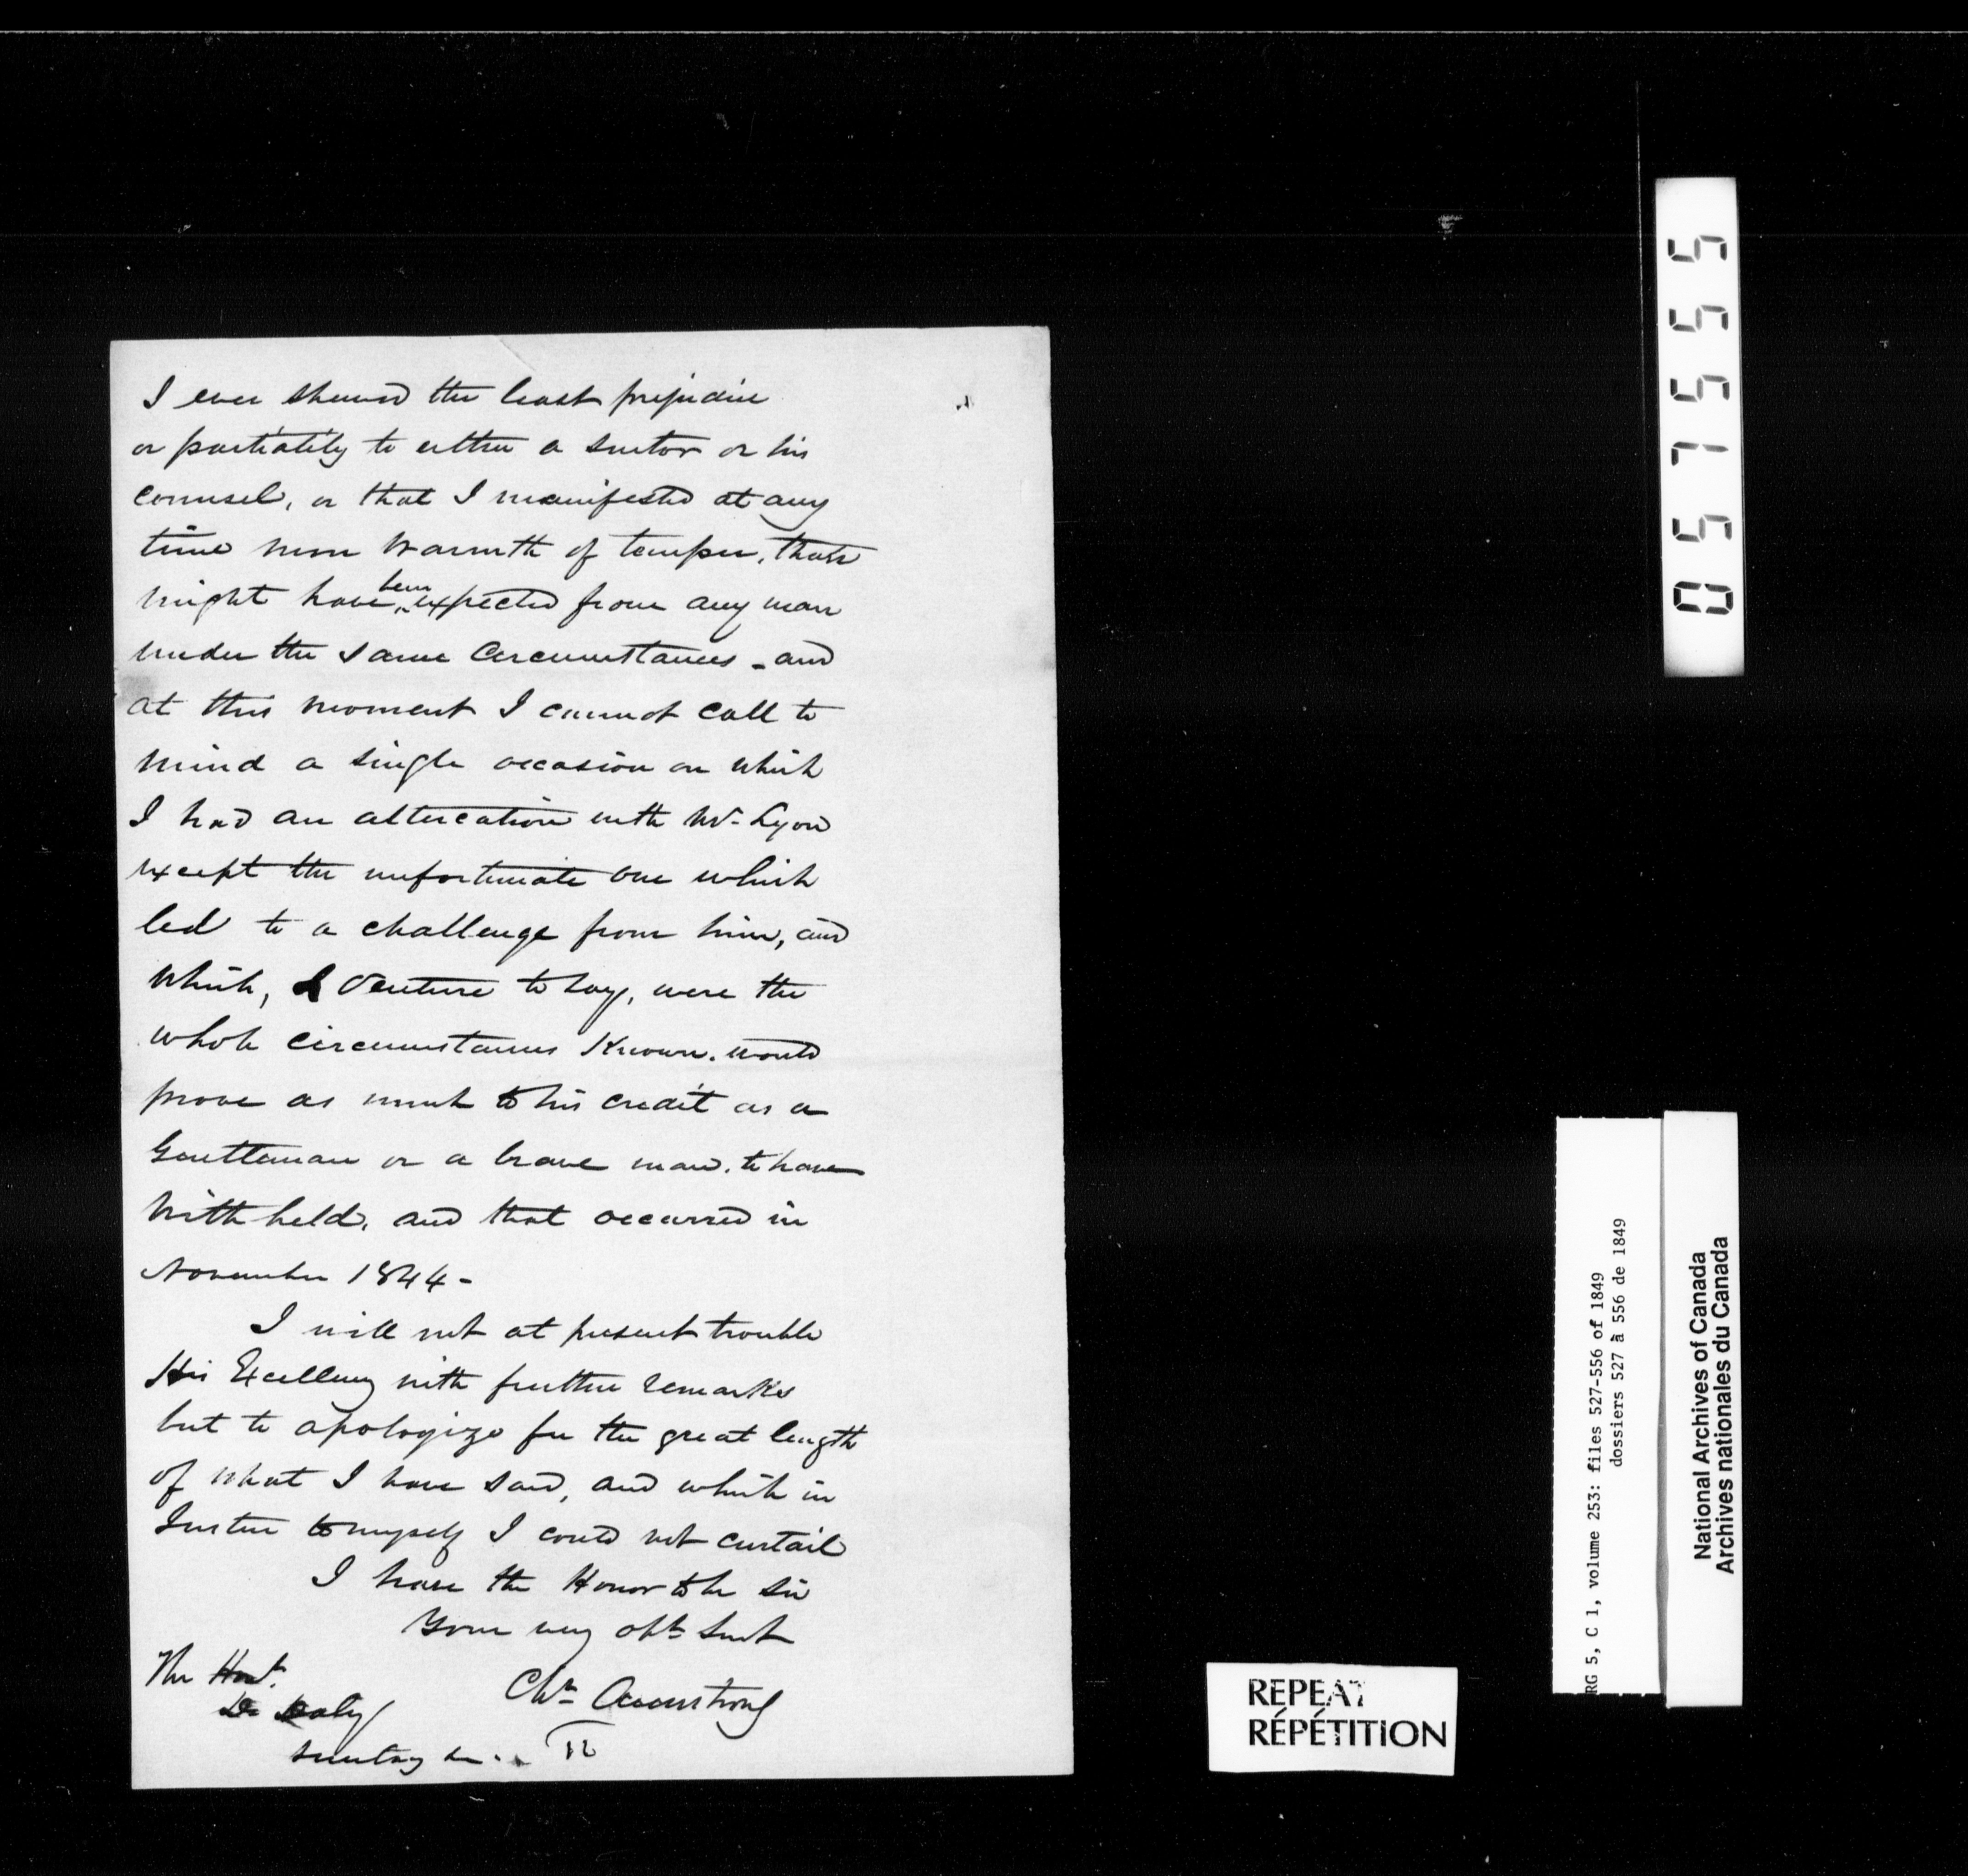 I ever shewed the least prejudice
or partiality to either a suitor or his
counsel, or that I manifested at any
time more warmth of temper, than
might have been expected from any man
under the same circumstances - and
at this moment I cannot call to
mind a single occasion on which
I had an altercation with Mr. Lyon
except the unfortunate one which
led to a challenge from him, and
which, I venture to say, were the
whole circumstances Known. would
prove as much to his credit as a
Gentleman or a brave man. to have
withheld, and that occurred in
November 1844 -
I will not at present trouble
His Excellency with further remarks
but to apologize for the great length
of what I have said, and which in
Justice to myself I could not curtail
I have the Honor to be Sir
Your very obt Servt
Chr Armstrong
The Honl.
D. Daly
057555
RG 5, C 1, volume 253: files 527-556 of 1849
dossiers 527 à 556 de 1849
National Archives of Canada
Archives nationales du Canada
REPEAT
RÉPÉTITION